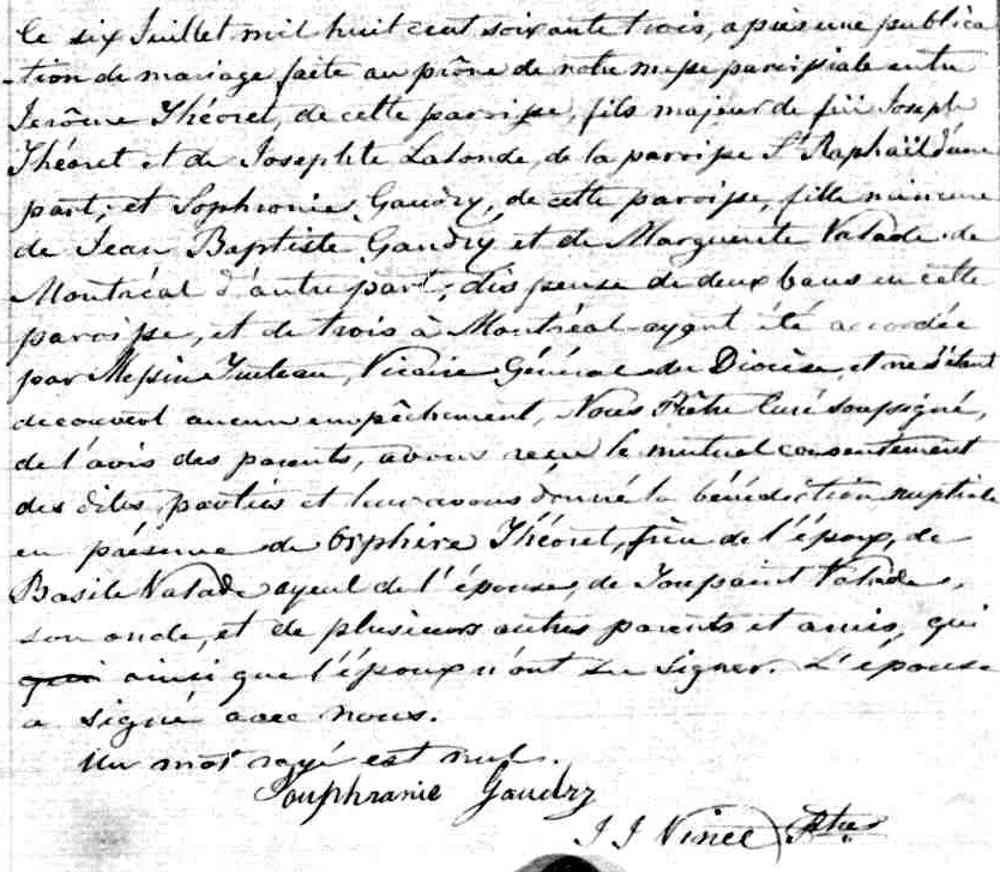 Ce six Juillet mil huit cent soixante trois, après une publica
-tion de mariage faite au prône de notre messe paroissiale entre
Jerôme Théoret, de cette paroisse, fils majeur de feu Joseph
Théoret et de Josephte Lalonde, de la paroisse St Raphaël d'une
part; et Sophronie Gaudry, de cette paroisse, fille mineure
de Jean Baptiste Gaudry et de Marguerite Valade de
Montréal d'autre part; dispense de deux bans en cette
paroisse, et de trois à Montréal ayant été accordée
par Messire Truteau, Vicaire Général du Diocèse, et ne s'étant
decouvert aucun empêchement, Nous Prêtre Curé soussigné,
de l'avis des parents, avons reçu le mutuel consentement
des dites parties et leur avons donné la bénédiction nuptiale
en présence de Orphire Théoret, frère de l'époux, de
Basile Valade ayeul de l'épouse, de Toussaint Valade,
son oncle, et de plusieurs autres parents et amis, qui
qui ainsi que l'époux n'ont su signer. L'épouse
a signé avec nous.
Un mot rayé est nul.
Souphranie Gaudry
J J Vinet Ptre